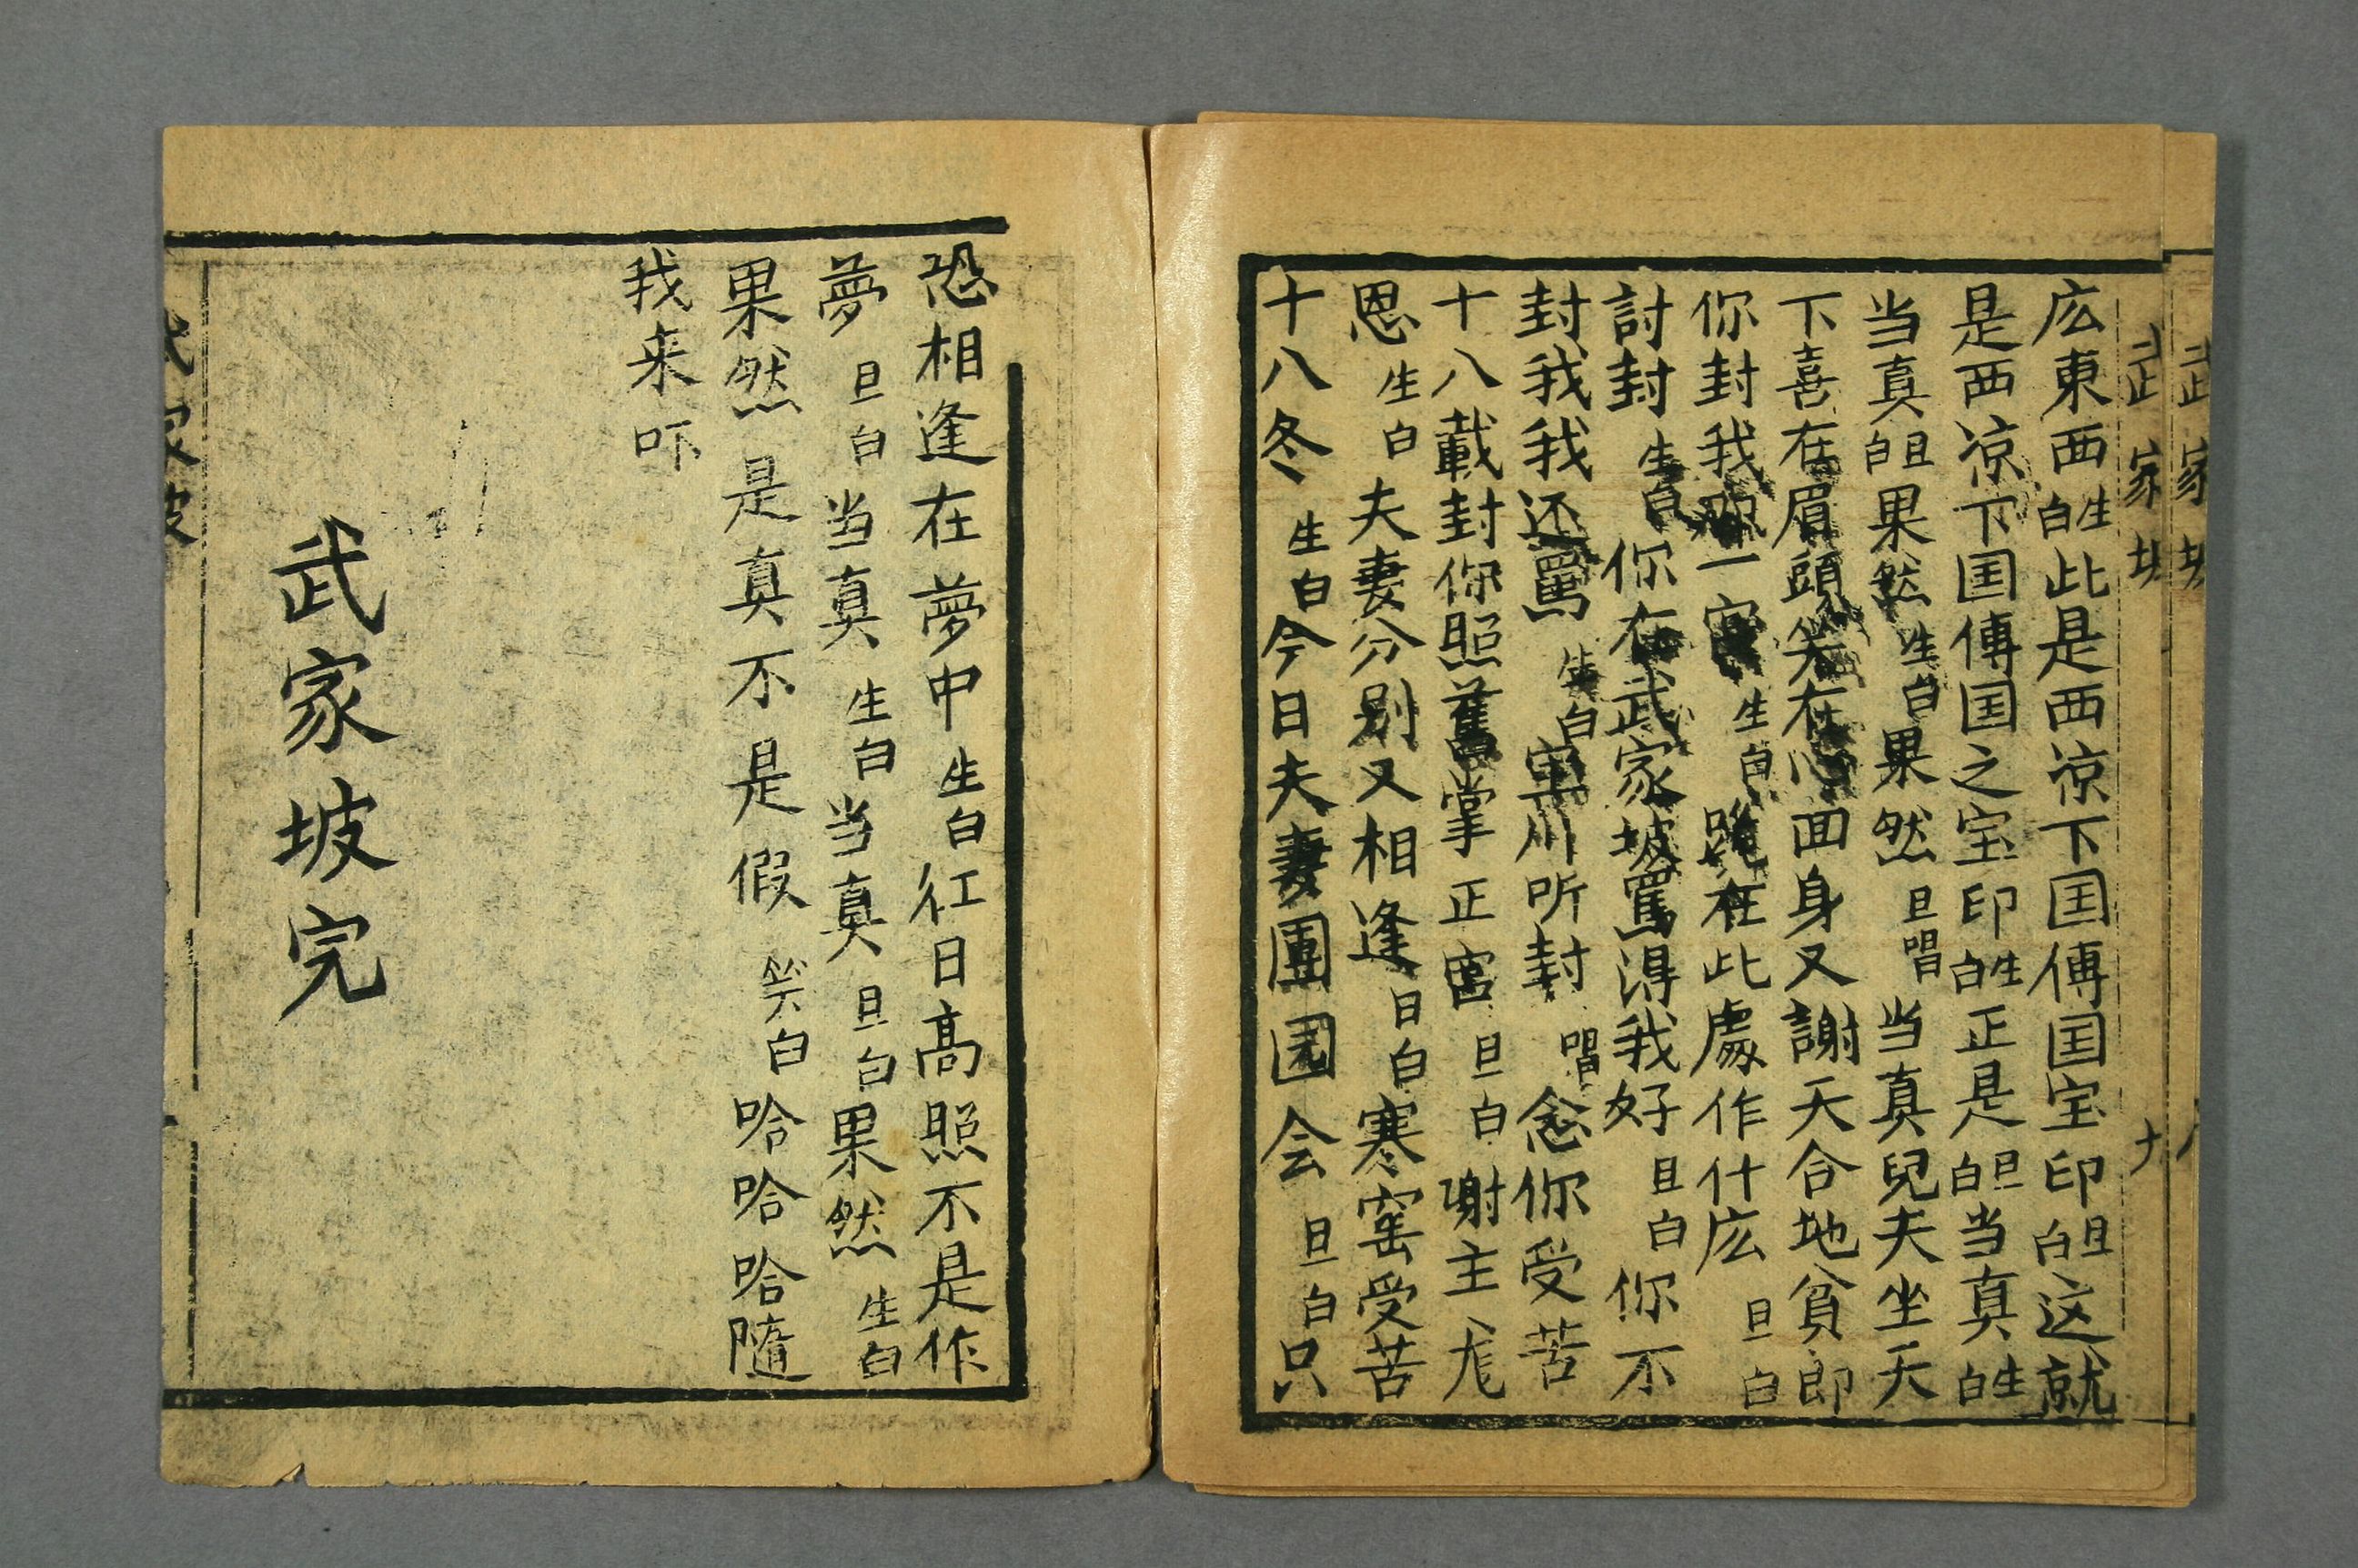 広東西白生此是西凉下国傳国宝印白旦这就
是西凉下国傳国之宝印白生正是白旦当真白生
当真白旦果然生白果然旦唱当真兒夫坐天
下喜在眉頭笑在心面身又謝天合地貧郎
你封我一宮生白跪在此處作什広旦白
討封生白你在武家坡罵淂我好旦白你不
封我我还罵生白川听封唱念你受苦
十八載封你照舊掌正宮旦白谢主
恩生白夫妻分别又相逢旦白寒窑受苦
十八冬生白今日夫妻團园会旦白只
恐相逢在夢中生白红日高照不是作
夢旦白当真生白当真旦白果然生白
果然是真不是假笑白哈哈哈隨
我来吓
武家坡完
武家坡